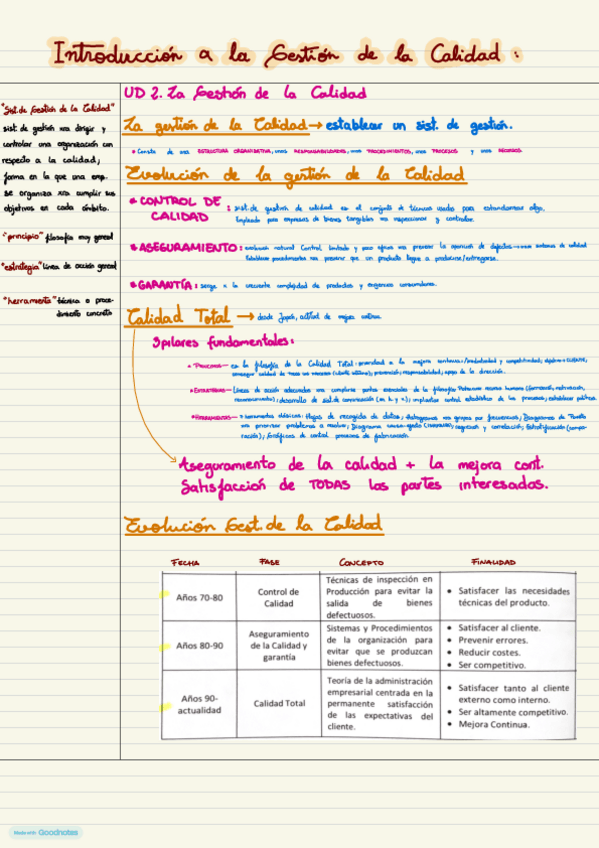 Introducción a la Gestión de la Calidad:
"Sist. de Gestión de la Calidad"
sist. de gestión xra dirigir y
controlar una organización con
respecto a la calidad;
forma en la que una emp.
se organiza xra cumplir sus
objetivos en cada ámbito.
"principio" filosofía muy general
"estrategia" línea de acción general
"herramienta" técnica o proce-
dimiento concreto
UD 2. La Gestión de la Calidad
La gestión de la Calidad → establecer un sist. de gestión.
* Consta de una ESTRUCTURA ORGANIZATIVA, unas RESPONSABILIDADES, unos PROCEDIMIENTOS, unos PROCESOS y unos RECURSOS.
Evolución de la gestión de la Calidad
* CONTROL DE
CALIDAD
: sist. de gestión de calidad es el conjunto de técnicas usada para estandarizar algo.
Empleado para empresas de bienes tangibles xra inspeccionar y controlar.
* ASEGURAMIENTO: evolución natural Control limitado y poco eficaz xra prevenir la aparición de defectos → crear sistemas de calidad
Establecer procedimientos xra prevenir que un producto llegue a producirse/entregarse.
* GARANTÍA: surge x la creciente complejidad de productos y exigencias consumidores.
Calidad Total → desde Japón, actitud de mejora continua.
3 pilares fundamentales:
* PRINCIPIOS → en la filosofía de la Calidad Total: prioridad a la mejora continua/productividad y competitividad; objetivo = CLIENTE;
conseguir calidad de todos los procesos (cliente último); prevención; responsabilidad; apoyo de la dirección.
* ESTRATEGIAS → Líneas de acción adecuadas xra cumplirse partes esenciales de la filosofía: Potenciar recurso humano (formación, motivación,
reconocimiento); desarrollo de sist. de comunicación; implantar control estadístico de los procesos; establecer política.
* HERRAMIENTAS → 7 herramientas clásicas: Hojas de recogida de datos; histogramas xra grupos por frecuencias; Diagramas de Pareto
xra priorizar problemas a resolver; Diagrama causa-efecto; regresión y correlación; Estratificación (compa-
ración); Gráficos de control procesos de fabricación.
Aseguramiento de la calidad + la mejora cont.
Satisfacción de TODAS las partes interesadas.
Evolución Gest. de la Calidad
FECHA FASE CONCEPTO FINALIDAD
Años 70-80
Control de
Calidad
Técnicas de inspección en
Producción para evitar la
salida de bienes
defectuosos.
• Satisfacer las necesidades
técnicas del producto.
Años 80-90
Aseguramiento
de la Calidad y
garantía
Sistemas y Procedimientos
de la organización para
evitar que se produzcan
bienes defectuosos.
• Satisfacer al cliente.
• Prevenir errores.
• Reducir costes.
• Ser competitivo.
Años 90-
actualidad
Calidad Total
Teoría de la administración
empresarial centrada en la
permanente satisfacción
de las expectativas del
cliente.
• Satisfacer tanto al cliente
externo como interno.
• Ser altamente competitivo.
• Mejora Continua.
Made with Goodnotes